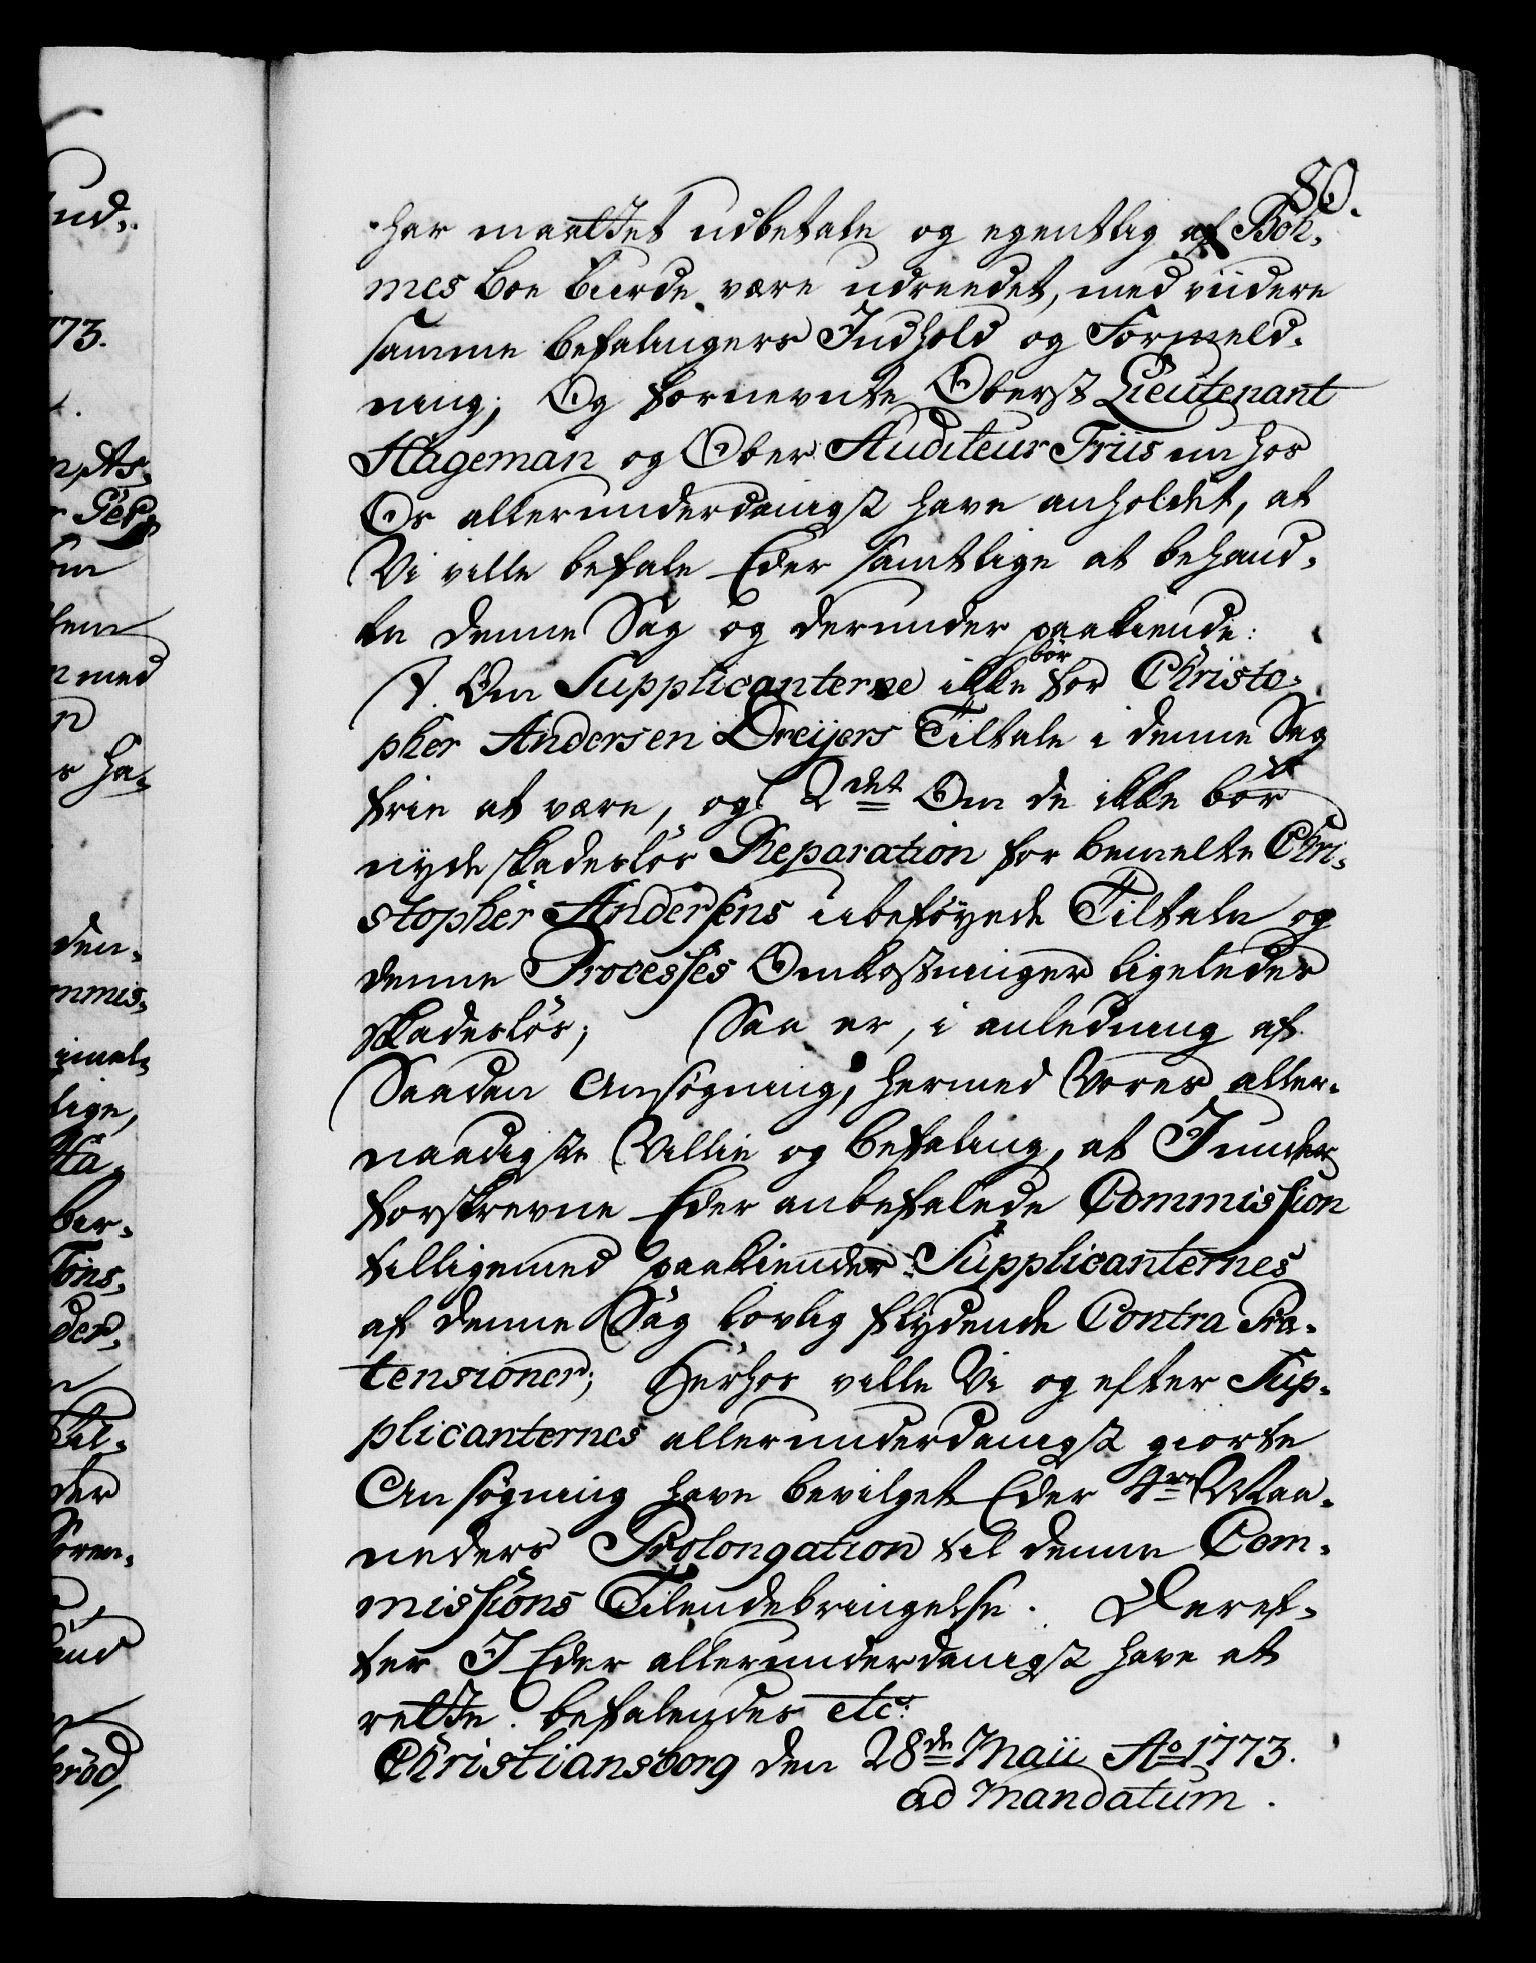 80.
har maattet udbetale og egentlig af Böh,
mes Boe burde være udreedet, med viidere
samme befalingers Indhold og Formeld,
ning; Og fornevnte Oberst Lieutenant
Hageman og Ober Auditeur Friis nu hos
Os allerunderdanigst have anholdet, at
Vi ville befale Eder samtlige at behand,
le denne Sag og derunder paakiende:
1. Om Supplicanterne ikke bör for Christo,
pher Andersen Dreijers Tiltale i denne Sag
frie at være, og 2det Om de ikke bör
nyde skadeslös Reparation for bemelte Chri,
stopher Andersens ubeföyede Tiltale og
denne Processes Omkostninger ligeledes
skadeslös; Saa er, i anledning af
Saadan Ansögning, hermed Vores aller,
naadigste Villie og befaling, at I under
forskrevne Eder anbefalede Commission
tilligemed paakiender Supplicanternes
af denne Sag lovlig flydende Contra Præ,
tensioner; Herhos ville Vi og efter Sup,
plicanternes allerunderdanigst giorte
Ansögning have bevilget Eder 4re Maa,
neders Prolongation til denne Com,
missions Tilendebringelse. Deref,
ter I Eder allerunderdanigst have at
rette. befalendes etc:
Christiansborg den 28de Maii Ao 1773.
ad Mandatum.